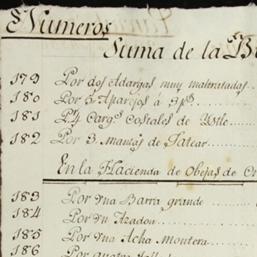 Numeros
Suma de la B
179 Por dos Adargas muy maltratadas
180 Por 5 Aparejos á 3 ps.
181 P.r 4 Carg.s Costales de Ystle
182 Por 3 mantas de Tatear
En la Hacienda de Obejas de
183 Por vna Barra grande
184 Por vn Azadon
185 Por vna Acha montera
186 Por quatro